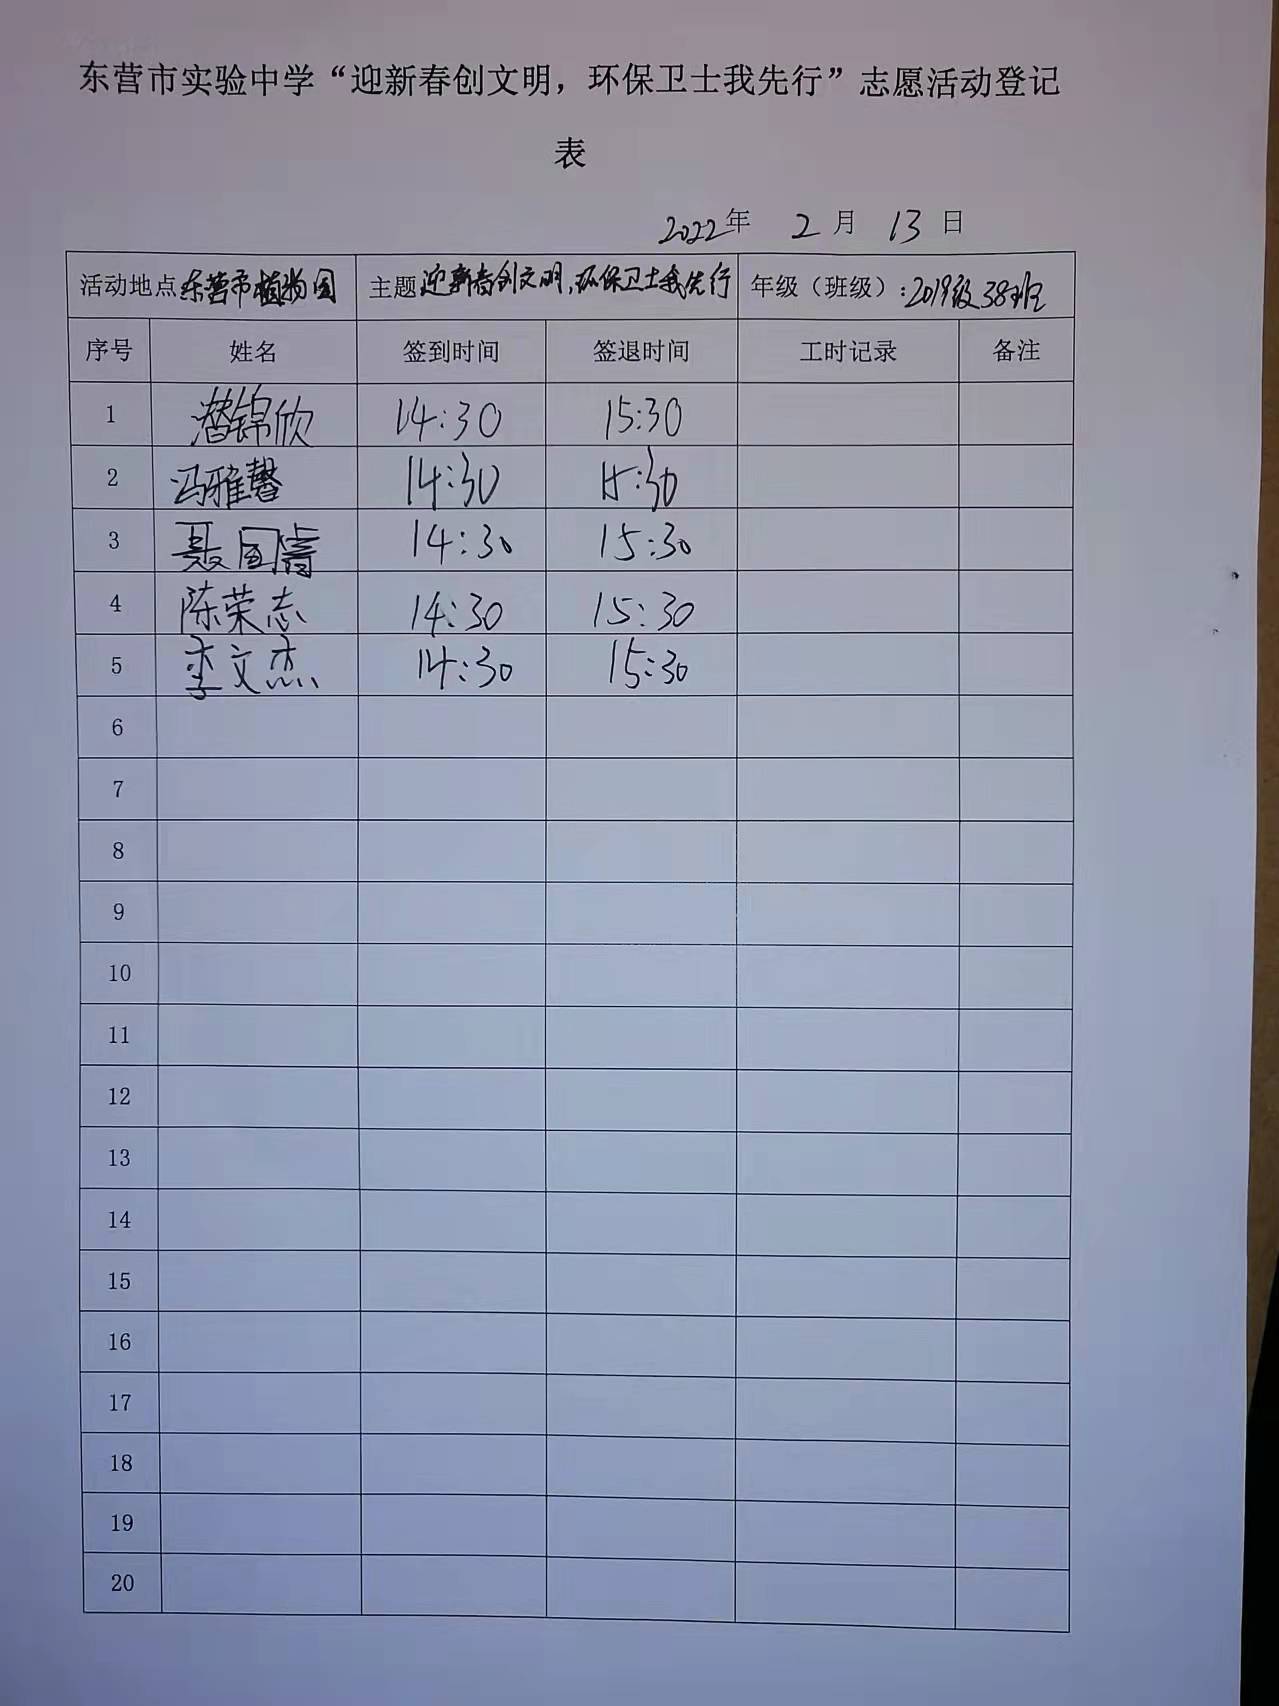 东营市实验中学“迎新春创文明，环保卫士我先行”志愿活动登记
表
2022年 2月 13日
活动地点 东营市植物园 主题 迎新春创文明，环保卫士我先行 年级（班级）：2019级38班
序号 姓名 签到时间 签退时间 工时记录 备注
1 潜锦欣 14:30 15:30
2 冯雅馨 14:30 15:30
3 聂国 14:30 15:30
4 陈荣志 14:30 15:30
5 李文杰 14:30 15:30
6
7
8
9
10
11
12
13
14
15
16
17
18
19
20